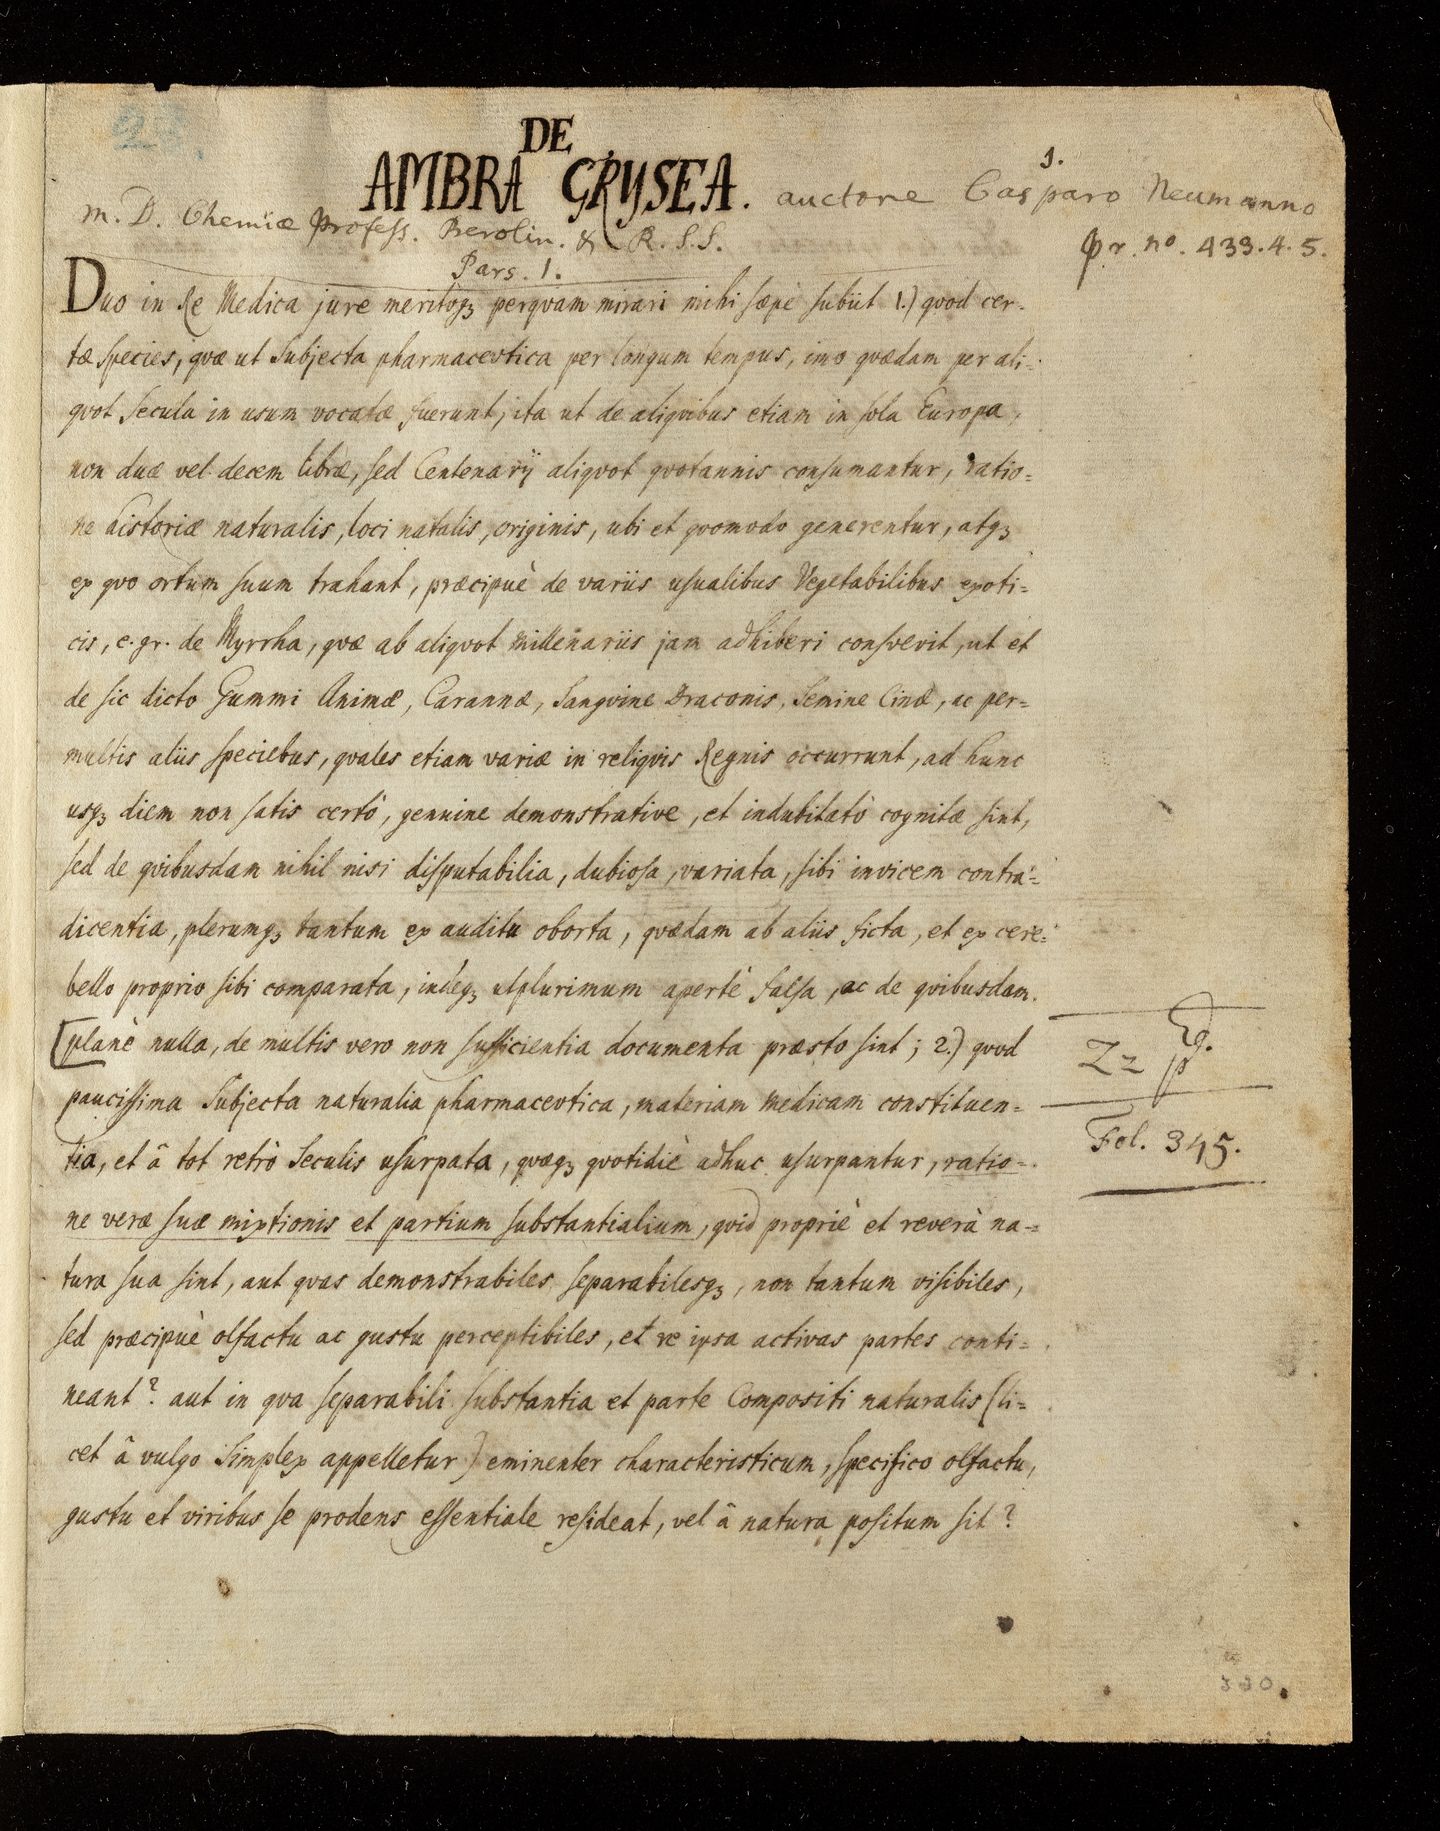 23.
1.
DE
AMBRA GRYSEA. auctore Casparo Neumanno
M. D. Chemiæ Profess. Berolin. & R. S. S.
Pr. no. 433. 4. 5.
Pars. 1.
Duo in Re Medica jure meritoqꝫ perqvam mirari mihi sæpè subiit 1.) qvod cer-
tæ species, qvæ ut Subjecta pharmacevtica per longum tempus, imo qvædam per ali-
qvot Secula in usum vocatæ fuerunt, ita ut de aliqvibus etiam in sola Europa,
non duæ vel decem libræ, sed Centenarij aliqvot qvotannis consumantur, ratio=
ne historiæ naturalis, loci natalis, originis, ubi et qvomodo generentur, atqꝫ
ex qvo ortum suum trahant, præcipuè de variis usualibus Vegetabilibus exoti=
cis, e. gr. de Myrrha, qvæ ab aliqvot millenariis jam adhiberi consvevit, ut et
de sic dicto Gummi Animæ, Carannæ, Sangvine Draconis, Semine Cinæ, ac per=
multis aliis speciebus, qvales etiam variæ in reliqvis Regnis occurrunt, ad hunc
usqꝫ diem non satis certò, genuine demonstrative, et indubitatò cognitæ sint,
sed de qvibusdam nihil nisi disputabilia, dubiosa, variata, sibi invicem contra=
dicentia, plerumqꝫ tantum ex auditu oborta, qvædam ab aliis ficta, et ex cere=
bello proprio sibi comparata, indeqꝫ utplurimum apertè falsa, ac de qvibusdam
[planè nulla, de multis vero non sufficientia documenta præsto sint; 2.) qvod
paucissima Subjecta naturalia pharmacevtica, materiam Medicam constituen=
tia, et â tot retrò Seculis usurpata, qvæqꝫ qvotidiè adhuc usurpantur, ratio=
ne veræ suæ mixtionis et partium substantialium, qvid propriè et reverà na=
tura sua sint, aut qvas demonstrabiles separabilesqꝫ, non tantum visibiles,
sed præcipuè olfactu ac gustu perceptibiles, et re ipsa activas partes conti=
neant? aut in qva separabili substantia et parte Compositi naturalis (li=
cet â vulgo Simplex appelletur) eminenter characteristicum, specifico olfactu,
gustu et viribus se prodens essentiale resideat, vel â natura positum sit?
Zz
Fol. 345.
330